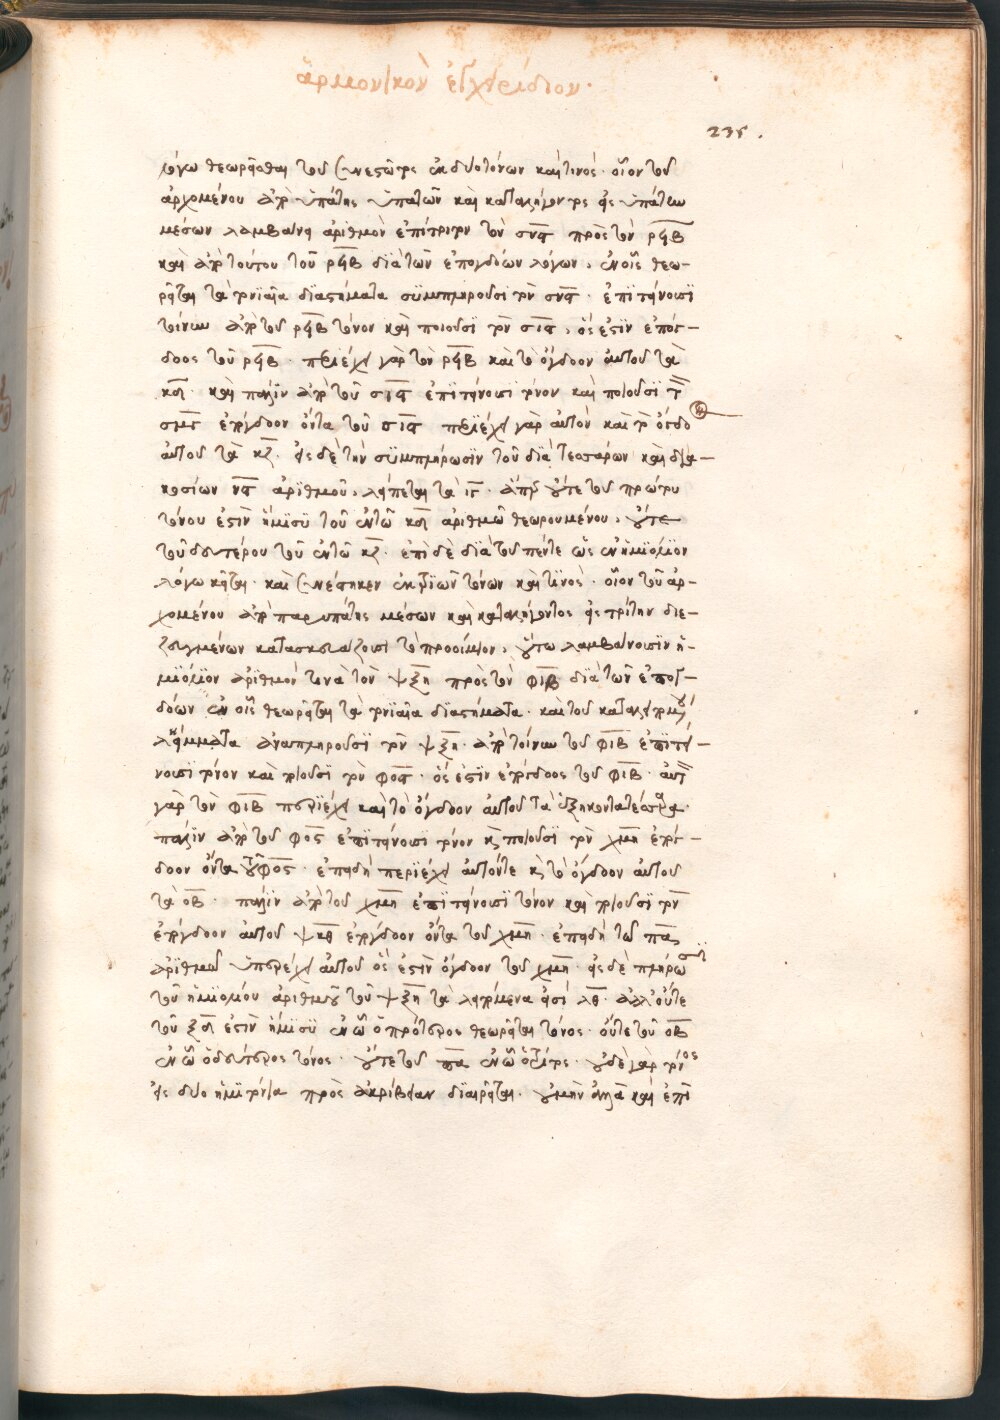 ἁρμονικὸν ἐγχειρίδιον·
235.
λόγω θεωρῆσθαι τοῦ συνεστῶτος ἐκ δύο τόνων καὶ τινός· οἷον τοῦ
ἀρχομένου ἀπὸ ὑπάτης ὑπατῶν καὶ καταλήγοντος εἰς ὑπάτων
μέσων λαμβάνει ἀριθμὸν ἐπίτριτον τὸν σνϛ πρὸς τὸν ρϟβ
καὶ ἀπὸ τούτου τοῦ ρϟβ διὰ τῶν ἐπογδόων λόγων, ἐν οἷς θεω-
ρεῖται τὰ τονιαῖα διαστήματα συμπληροῦσι τὸν σνϛ· ἐπιτείνουσι
τοίνυν ἀπὸ τοῦ ρϟβ τόνον καὶ ποιοῦσι τὸν σιϛ, ὅς ἐστιν ἐπόγ-
δοος τοῦ ρϟβ· περιέχει γὰρ τὸν ρϟβ καὶ τὸ ὄγδοον αὐτοῦ τὰ
κδ· καὶ πάλιν ἀπὸ τοῦ σιϛ ἐπιτείνουσι τόνον καὶ ποιοῦσι τὸν
σμγ ἐπόγδοον ὄντα τοῦ σιϛ περιέχει γὰρ αὐτὸν καὶ τὸ ὄγδο
αὐτοῦ τὰ κζ· εἰς δὲ τὴν συμπλήρωσιν τοῦ διὰ τεσσάρων καὶ δια-
κοσίων νϛ ἀριθμοῦ, λείπεται τὰ ιγ· ἅπερ οὔτε τοῦ πρώτου
τόνου ἐστὶν ἥμισυ τοῦ ἐν τῶ κδ ἀριθμῶ θεωρουμένου, οὔτε
τοῦ δευτέρου τοῦ ἐν τῶ κζ· ἐπὶ δὲ διὰ τοῦ πέντε ὡς ἐν ἡμιολίον
λόγω κεῖται· καὶ συνέστηκεν ἐκ τριῶν τόνων καὶ τινός· οἷον τοῦ ἀρ-
χομένου ἀπὸ παρυπάτης μέσων καὶ καταλήγοντος εἰς τρίτην διε-
ζευγμένων κατασκευάζουσι τὸ προοίμιον, οὕτω λαμβάνουσιν ἡ-
μιόλιον ἀριθμὸν τινὰ τὸν ψξη πρὸς τὸν φιβ διὰ τῶν ἐπογ-
δόων ἐν οἷς θεωρεῖται τὰ τονιαῖα διαστήματα· καὶ τοῦ καταλειπομένου
λήμματα ἀναπληροῦσι τὸν ψξη· ἀπὸ τοίνυν τοῦ φιβ ἐπιτεί-
νουσι τόνον καὶ ποιοῦσι τὸν φοϛ· ὅς ἐστιν ἐπόγδοος τοῦ φιβ· αὐτὸν
γὰρ τὸν φιβ περιέχει καὶ τὸ ὄγδοον αὐτοῦ τὰ ἑξηκοντατέσσαρα·
πάλιν ἀπὸ τοῦ φοϛ ἐπιτείνουσι τόνον κ ποιοῦσι τὸν χμη ἐπόγ-
δοον ὄντα τοῦ φοϛ· ἐπειδὴ περιέχει αὐτόν τε κ τὸ ὄγδοον αὐτοῦ
τὰ οβ· πάλιν ἀπὸ τοῦ χμη ἐπιτείνουσι τόνον καὶ ποιοῦσι τὸν
ἐπόγδοον αὐτοῦ ψκθ ἐπόγδοον ὄντα τοῦ χμη· ἐπειδὴ τῶ πα
ἀριθμῶ ὑπερέχει αὐτοῦ ὅς ἐστὶν ὄγδοον τοῦ χμη· εἰς δὲ πλήρωσιν
τοῦ ἡμιολίου ἀριθμοῦ τοῦ ψξη τὰ λειπόμενα εἰσὶ λθ· ἀλλ' οὔτε
τοῦ ξδ ἐστὶν ἥμισυ ἐν ὧ ὁ πρότερος θεωρεῖται τόνος· οὔτε τοῦ οβ
ἐν ὧ ὁ δεύτερος τόνος· οὔτε τοῦ πα ἐν ὧ ὁ τρίτος· οὐδὲ γὰρ τόνος
εἰς δύο ἡμιτόνια πρὸς ἀκρίβειαν διαιρεῖται· οὐ μὴν ἀλλὰ καὶ ἐπὶ